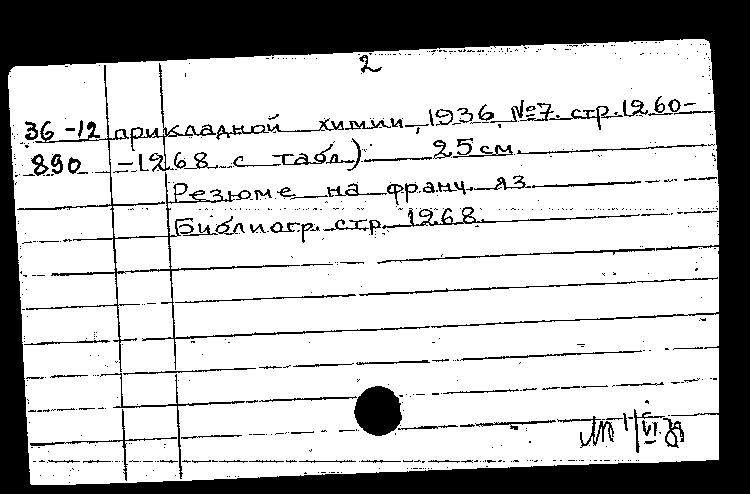 2
36-12 прикладной химии, 1936, №7. стр. 1260-
890 -1268 с табл.) 25 см.
Резюме на франц. яз.
Библиогр. стр. 1268.